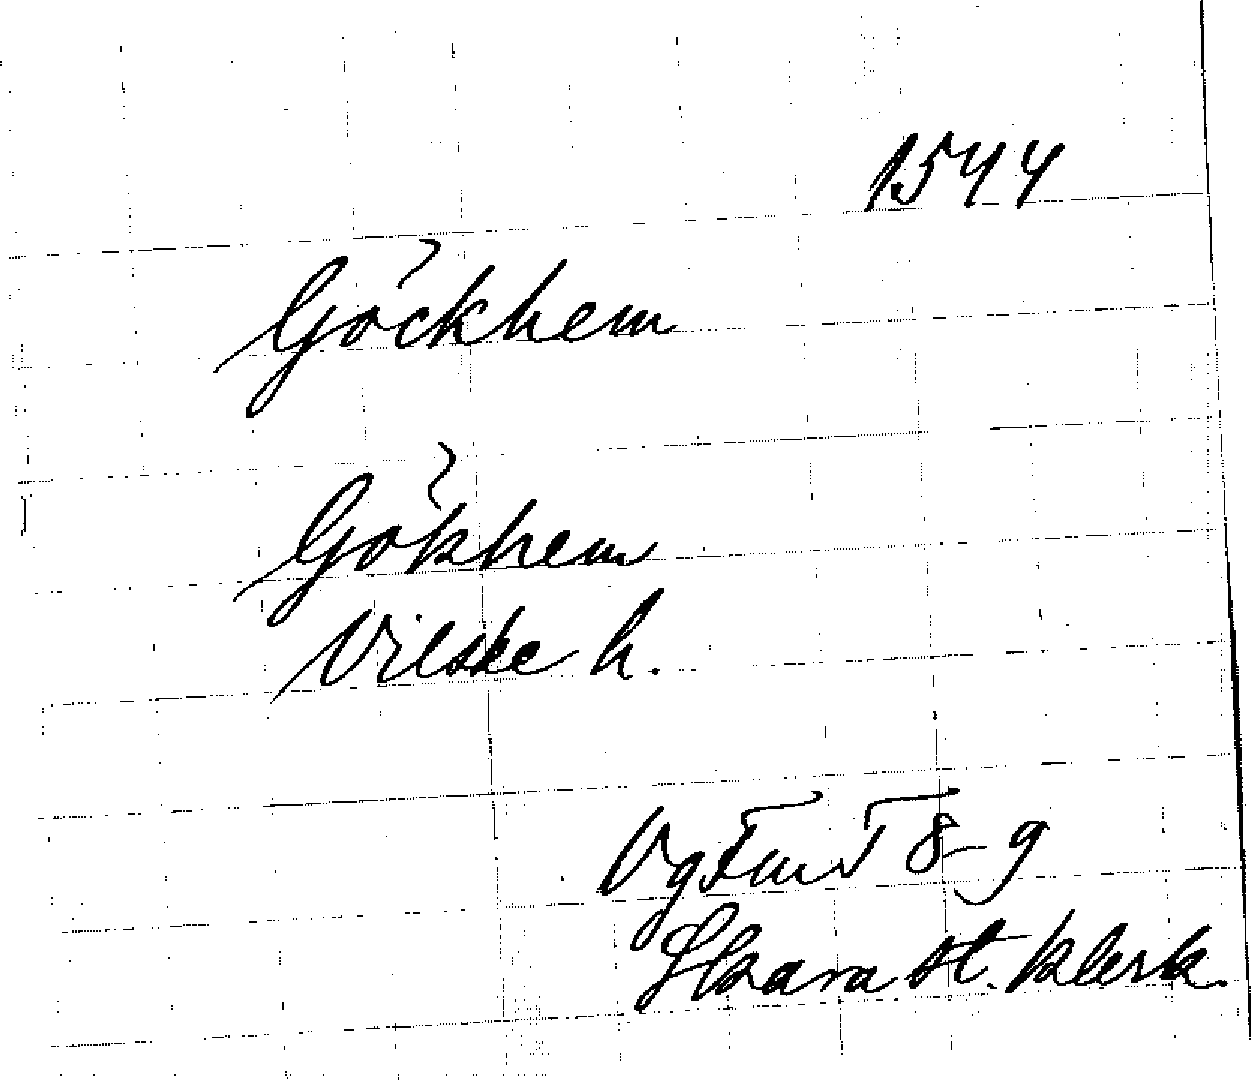 1544
Göckhem
Gökhem
Vilske h.
VgFmT 8-9
Skara st. klerk.